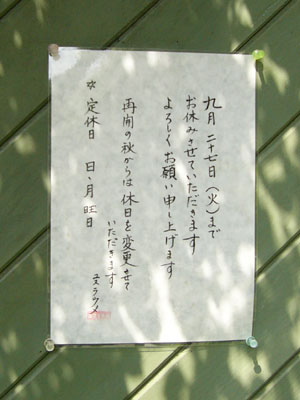 九月二十七日（火）まで
お休みさせていただきます
よろしくお願い申し上げます
再開の秋からは休日を変更させて
いただきます
ユスラウメ
☆定休日 日、月 旺日